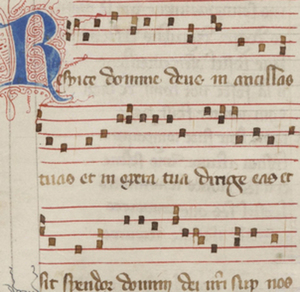 Respice domine deus in ancillas
tuas et in opera tua dirige eas et
sit splendor domini dei nrī sup nos